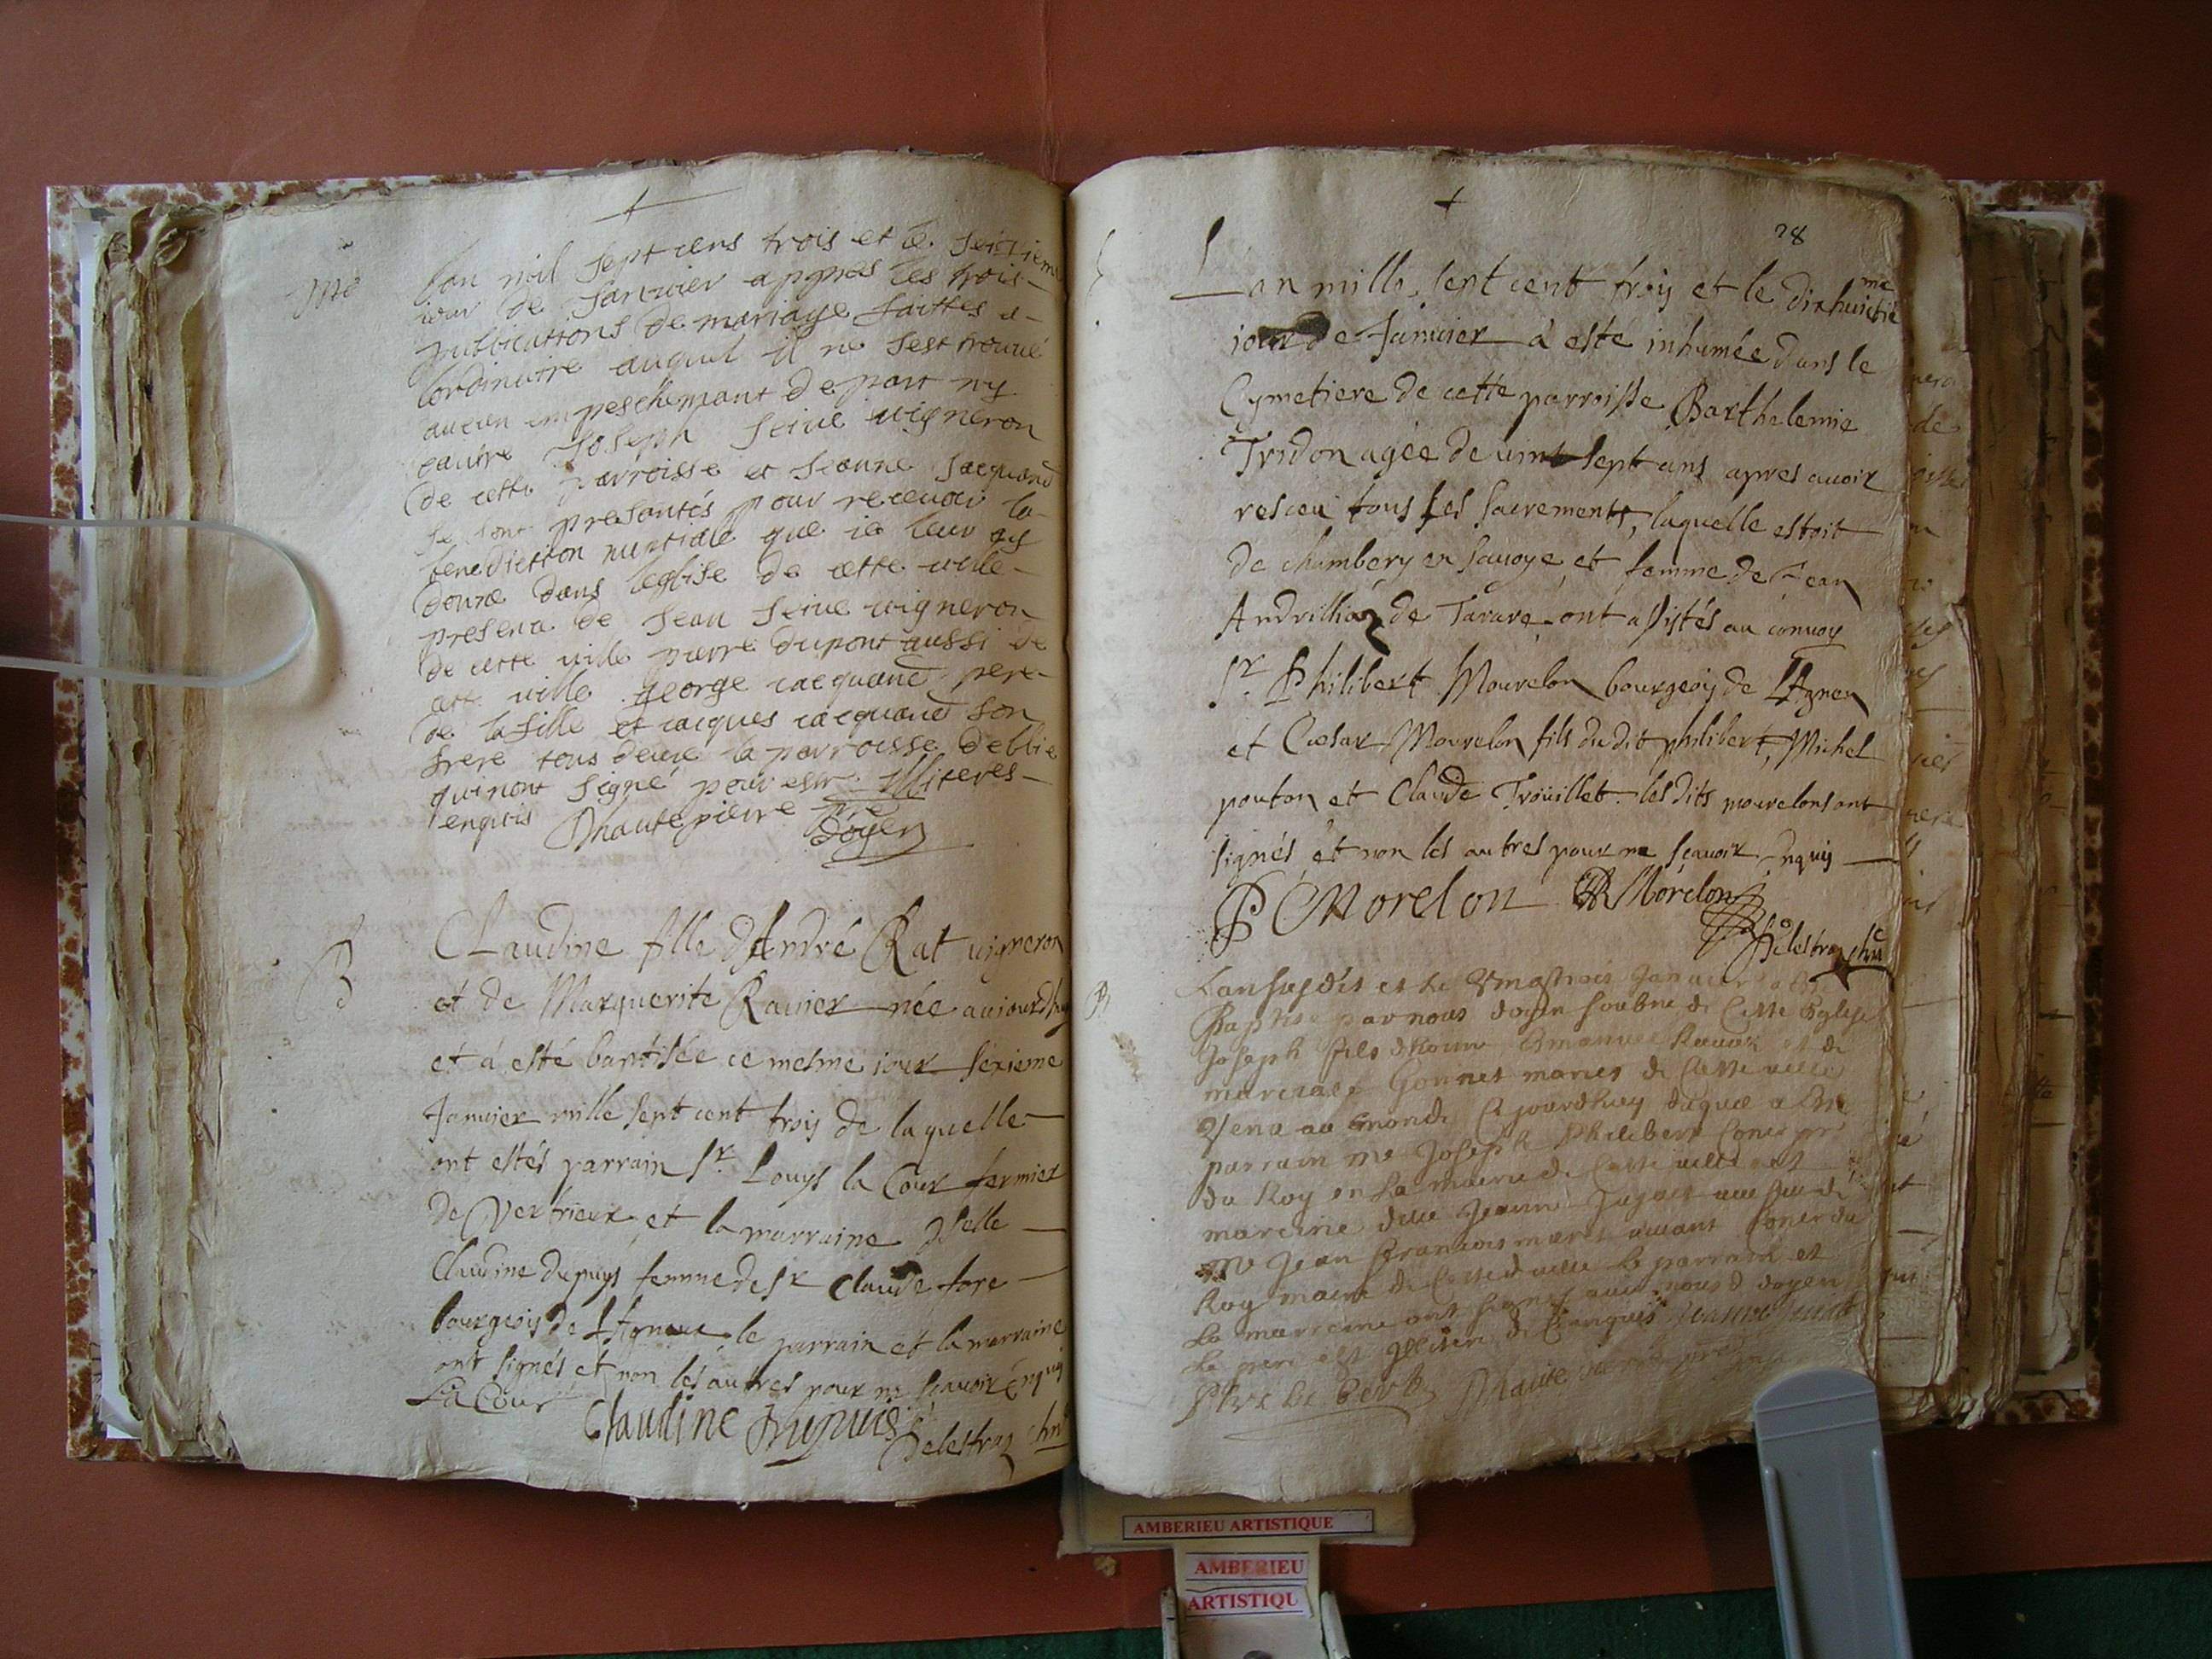 me
Lan mil sept cens trois et le seizieme
iour de Janvier appres les trois
publications de mariage faittes a
lordinaire auquel il ne sest trouué
aucun empeschemant de part ny
dautre Joseph Seiue uigneron
de cette parroisse et Jeanne Jacquand
se sont presantés pour receuoir la
benediction nuptiale que ie leur ay
donne dans leglise de cette uille
presence de Jean Seiue uigneron
de cette uille pierre dupont aussi de
cette uille george iacquand pere
de la fille et iacques iacquand son
frere tous deux la parroisse de
qui nont signé pour estre illiteres
enquis Dhautepierre pre
doyen
B
Claudine fille dAndré Rat uigneron
et de Marguerite Rauier née auiourdhuy
et à esté baptisée ce mesme iour sexieme
Januier mille sept cent troy de laquelle
ont estés parrain Sr. Louys la Cour fermier
de Vertrieux et la marraine Delle
Claudine dupuys femme de Sr Claude fore
bourgeois de le parrain et la marraine
ont signés et non lés autres pour ne scauoir enquis
La Cour
Claudine Dupuis
Delestraz chne
28
Lan mille sept cent troy et le dixhuictieme
iour de Januier à esté inhumée dans le
Cymetiere de cette parroisse Barthelemie
Tridon agée de uint sept ans apres auoir
resceu tous les sacrements, laquelle estoit
de chambery en sauoye et femme de Jean
de Tarare ont assistés au conuoy
Sr. Philibert Mourelon bourgeois de
et Cæsar Mourelon fils du dit philibert, Michel
pouton et Claude Troüillet lesdits mourelons ont
signés et non lés autres pour ne scauoir enquis
P Morelon Morelon
Delestraz chne
B
Lan susdit et le Januier a esté
Baptisé par nous doyen soubne de Cette Eglise
Joseph fils dhonn Emanuel et de
Gonnet maries de Cette uille
Venu au monde Ajourdhuy duquel a esté
parrain me Joseph Philibert
du Roy en la mairie de Cette uille et
mareine delle Jeanne
me Jean francois
Roy maire de Cette uille le parrain et
La marreine ont signes auec nous d doyen
Le pere est de enquis